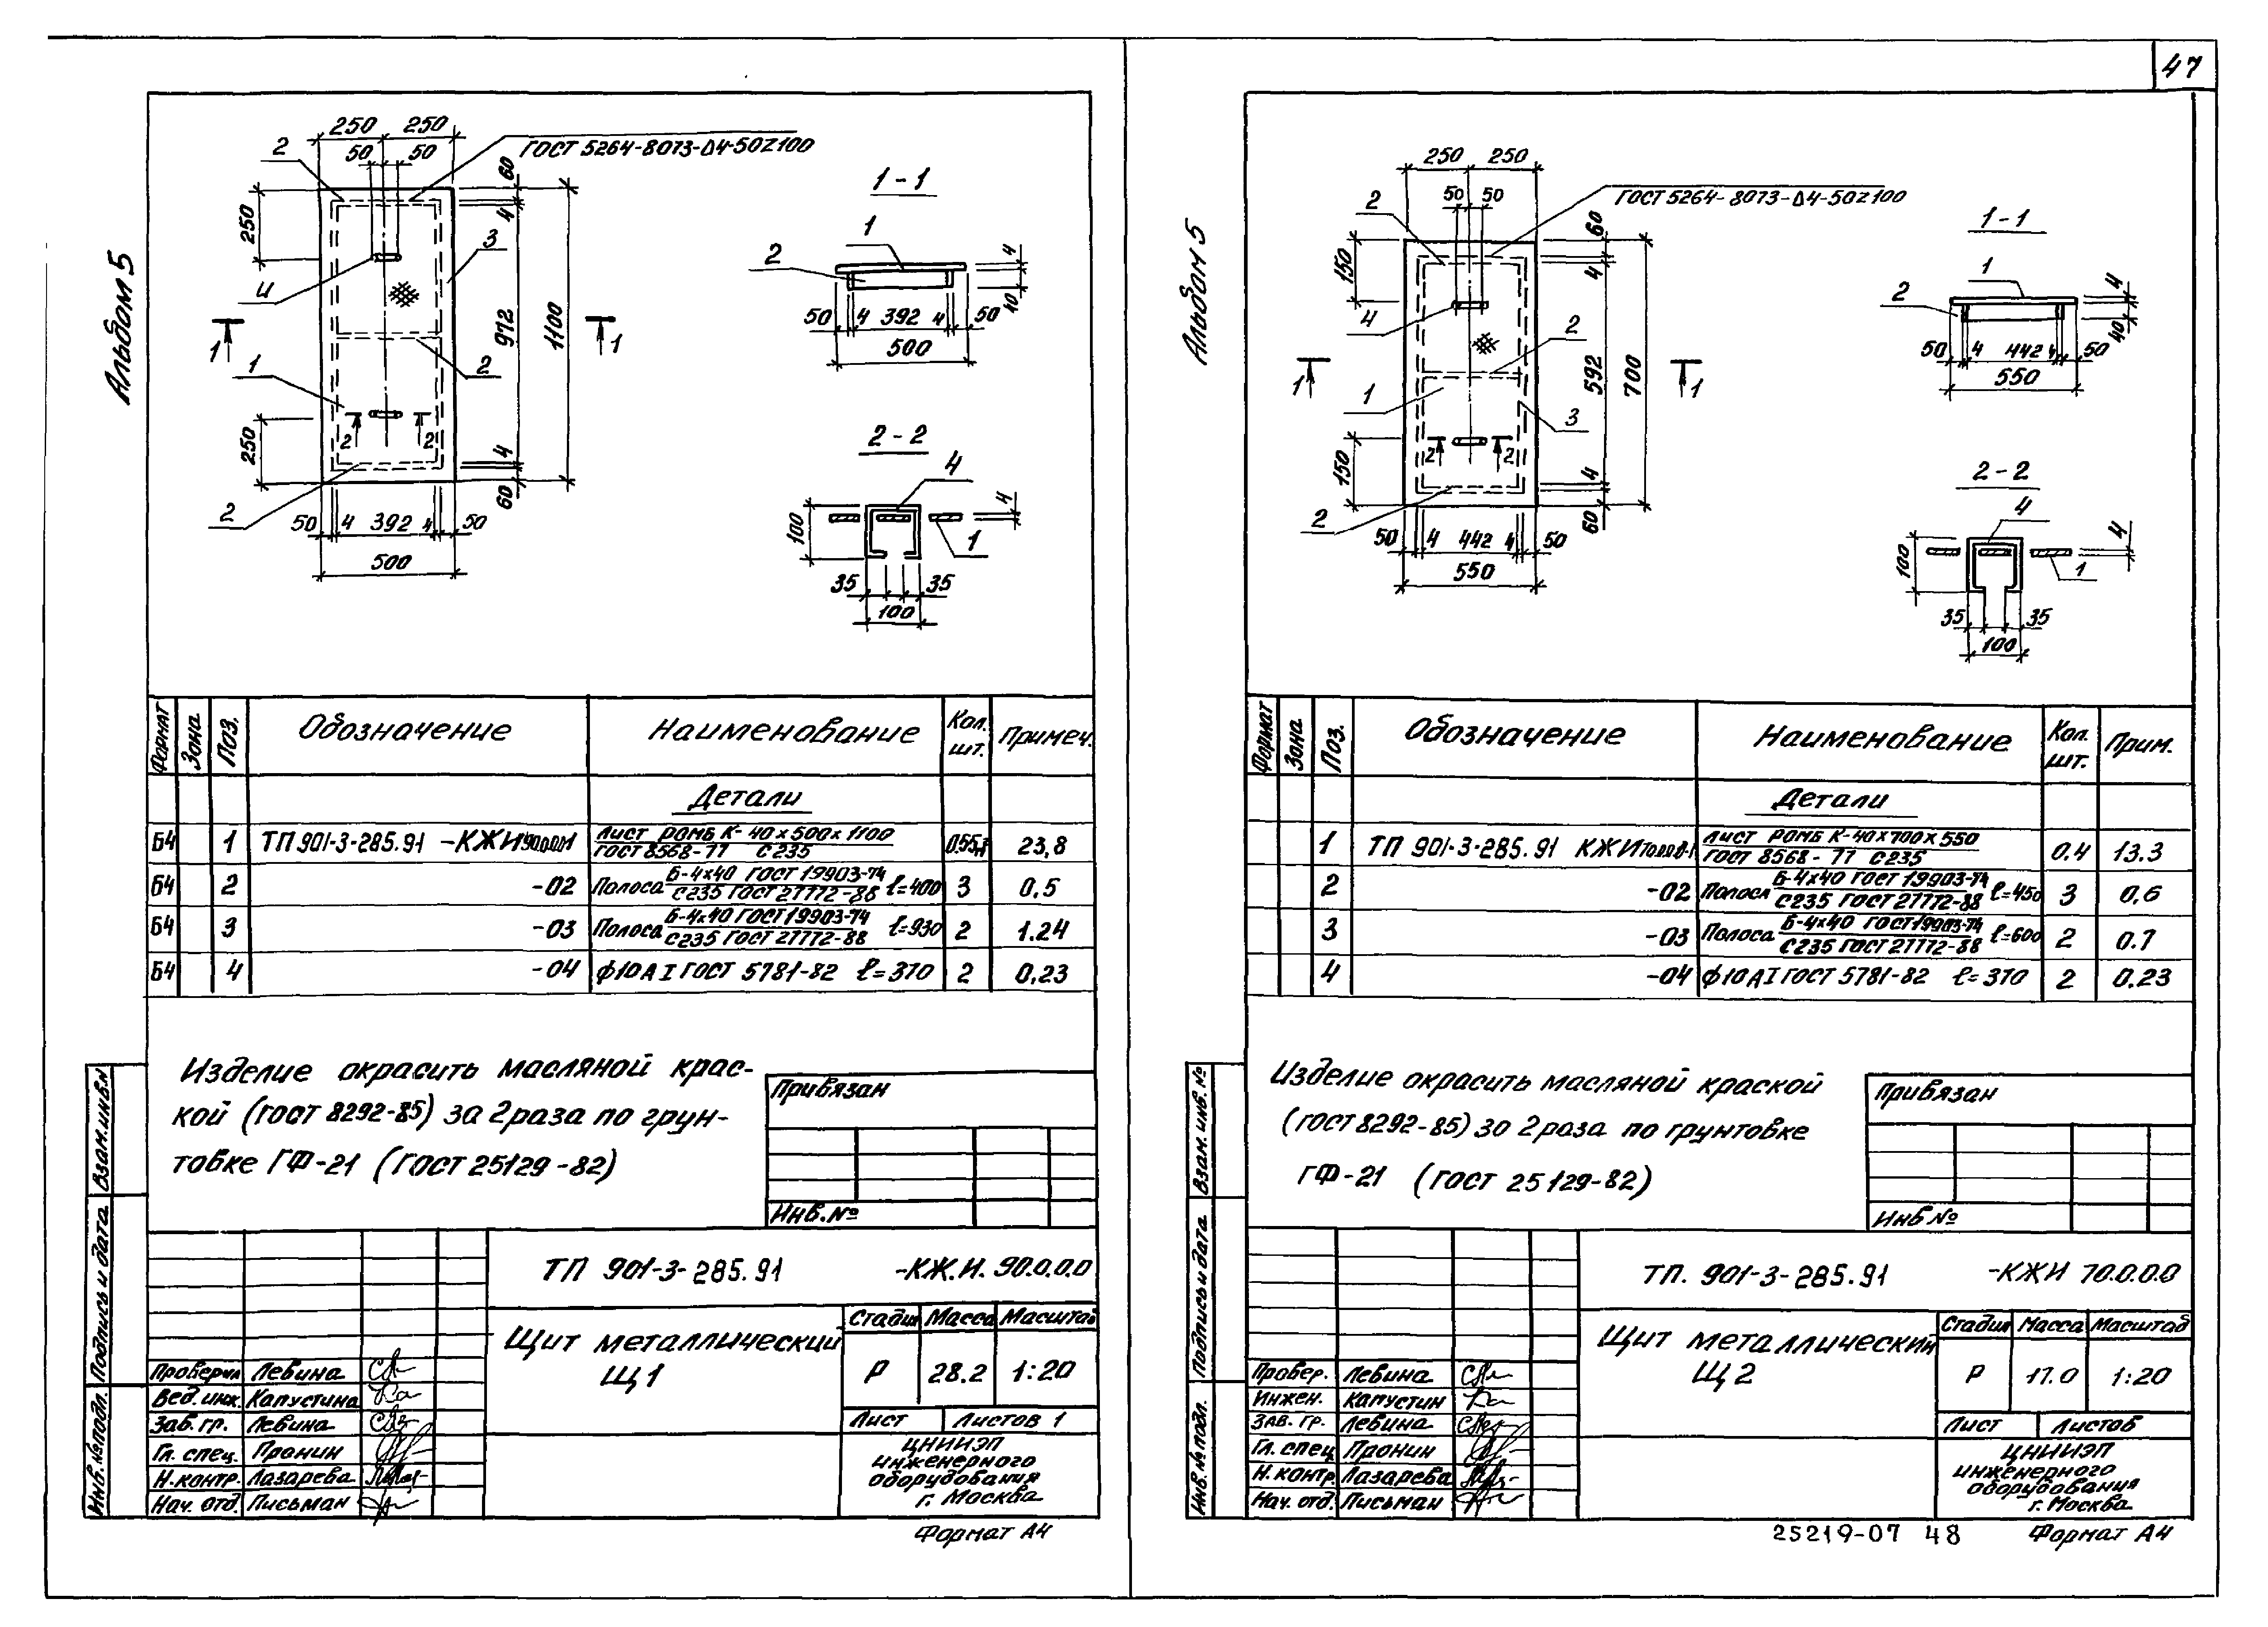 47
Альбом 5
250 250
50 50
2
ГОСТ 5264-8073-Δ4-50Z100
60
4
250
3
4
972
1100
1 1
1
2
250
2 2
4
60
2
50 4 392 4 50
500
1-1
1
2
4
40
50 4 392 4 50
500
2-2
4
4
100
1
35 35
100
Формат Зона Поз. Обозначение Наименование Кол. шт. Примеч.
Детали
Б4 1 ТП 901-3-285.91 -КЖИ 90.0.0.01 Лист РОМБ К-40х500х1100 ГОСТ 8568-77 С235 0.55 23,8
Б4 2 -02 Полоса Б-4х40 ГОСТ 19903-74 С235 ГОСТ 27772-88 ℓ=400 3 0,5
Б4 3 -03 Полоса Б-4х40 ГОСТ 19903-74 С235 ГОСТ 27772-88 ℓ=930 2 1.24
Б4 4 -04 ф10АI ГОСТ 5781-82 ℓ=370 2 0,23
Изделие окрасить масляной крас-
кой (ГОСТ 8292-85) за 2 раза по грун-
товке ГФ-21 (ГОСТ 25129-82)
Привязан
Инв.№
Взам.инв.N
Подпись и дата
Инв.№подл.
ТП 901-3-285.91 -КЖ.И. 90.0.0.0
Щит металлический
Щ1
Стадия Масса Масштаб
Р 28.2 1:20
Лист Листов 1
Проверил Левина
Вед.инж. Капустина
Зав.гр. Левина
Гл. спец. Пронин
Н.контр. Лазарева
Нач. отд. Письман
ЦНИИЭП
инженерного
оборудования
г. Москва
Формат А4
Альбом 5
250 250
50 50
2
ГОСТ 5264-8073-Δ4-50Z100
60
4
150
4
2
592
700
1 1
1
3
150
2 2
4
60
2
50 4 442 4 50
550
1-1
1
2
4
40
50 4 442 4 50
550
2-2
4
4
100
1
35 35
100
Формат Зона Поз. Обозначение Наименование Кол. шт. Прим.
Детали
1 ТП 901-3-285.91 КЖИ Лист РОМБ К-40х700х550 ГОСТ 8568-77 С235 0.4 13.3
2 -02 Полоса Б-4х40 ГОСТ 19903-74 С235 ГОСТ 27772-88 ℓ=450 3 0,6
3 -03 Полоса Б-4х40 ГОСТ 19903-74 С235 ГОСТ 27772-88 ℓ=600 2 0.7
4 -04 ф10АI ГОСТ 5781-82 ℓ=370 2 0.23
Изделие окрасить масляной краской
(ГОСТ 8292-85) за 2 раза по грунтовке
ГФ-21 (ГОСТ 25129-82)
Привязан
Инв №
Взам. инв. №
Подпись и дата
Инв.№ подл.
ТП. 901-3-285.91 -КЖИ 70.0.0.0
Щит металлический
Щ2
Стадия Масса Масштаб
Р 17.0 1:20
Лист Листов
Провер. Левина
Инжен. Капустин
Зав. гр. Левина
Гл. спец. Пронин
Н.контр. Лазарева
Нач. отд. Письман
ЦНИИЭП
инженерного
оборудования
г. Москва
25219-07 48 Формат А4